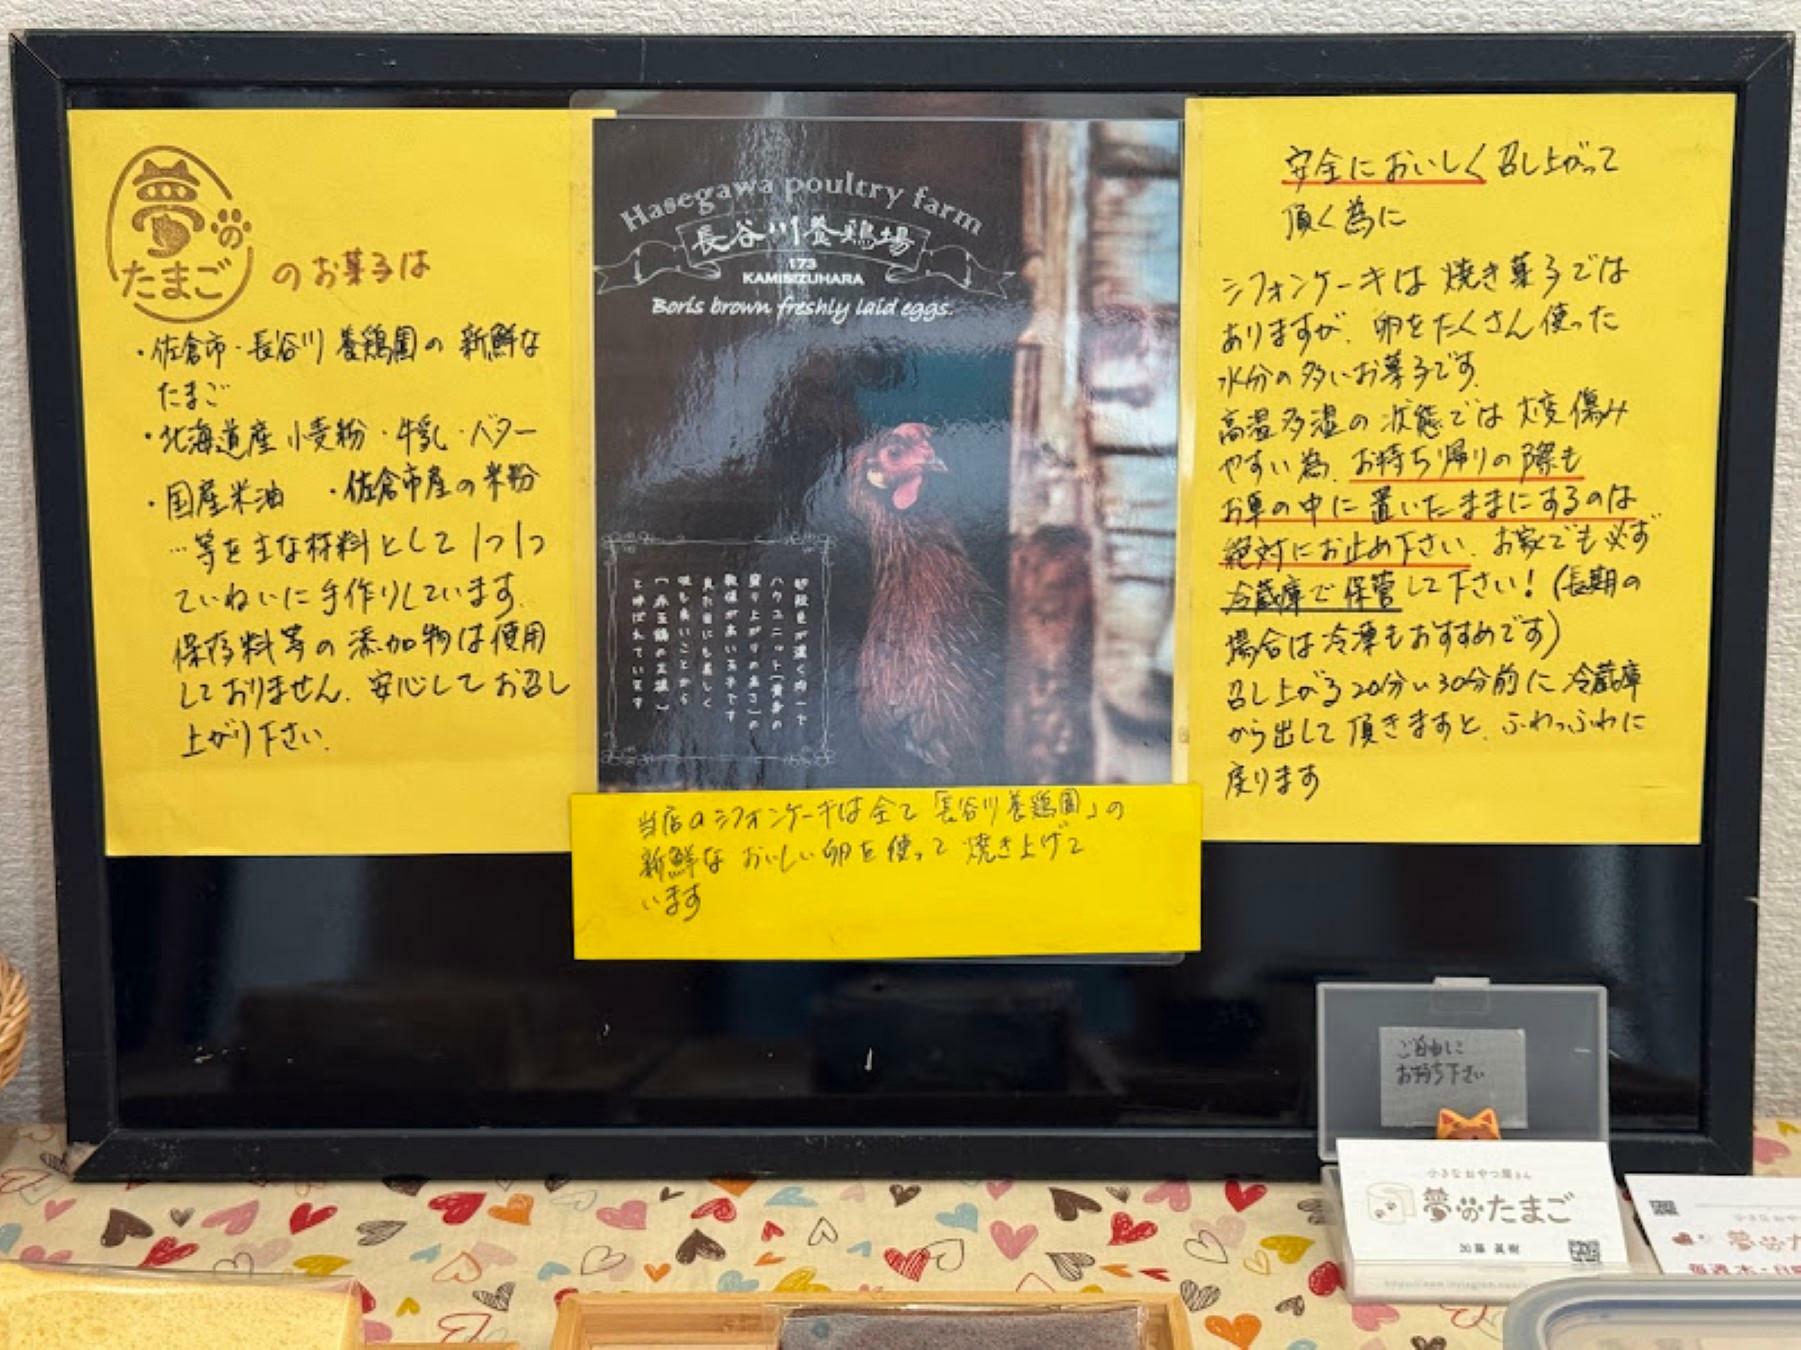 夢の
たまご
のお菓子は
・佐倉市・長谷川養鶏園の新鮮な
たまご
・北海道産小麦粉・牛乳・バター
・国産米油 ・佐倉市産の米粉
…等を主な材料として1つ1つ
ていねいに手作りしています。
保存料等の添加物は使用
しておりません。安心してお召し
上がり下さい。
Hasegawa poultry farm
長谷川養鶏場
173
KAMISIZUHARA
Boris brown freshly laid eggs.
卵殻色が濃く均一で
ハウユニット(黄身の
盛り上がりの高さ)の
数値が高い玉子です
見た目にも美しく
味も良いことから
「赤玉鶏の王様」
と呼ばれています
当店のシフォンケーキは全て「長谷川養鶏園」の
新鮮なおいしい卵を使って焼き上げて
います
安全においしく召し上がって
頂く為に
シフォンケーキは焼き菓子では
ありますが、卵をたくさん使った
水分の多いお菓子です。
高温多湿の状態では大変傷み
やすい為、お持ち帰りの際も
お車の中に置いたままにするのは
絶対にお止め下さい。お家でも必ず
冷蔵庫で保管して下さい!(長期の
場合は冷凍もおすすめです)
召し上がる20分い30分前に冷蔵庫
から出して頂きますと、ふわっふわに
戻ります
ご自由に
お持ち下さい
小さなおやつ屋さん
夢のたまご
加藤 眞樹
小さなおや
夢のた
毎週木・日曜